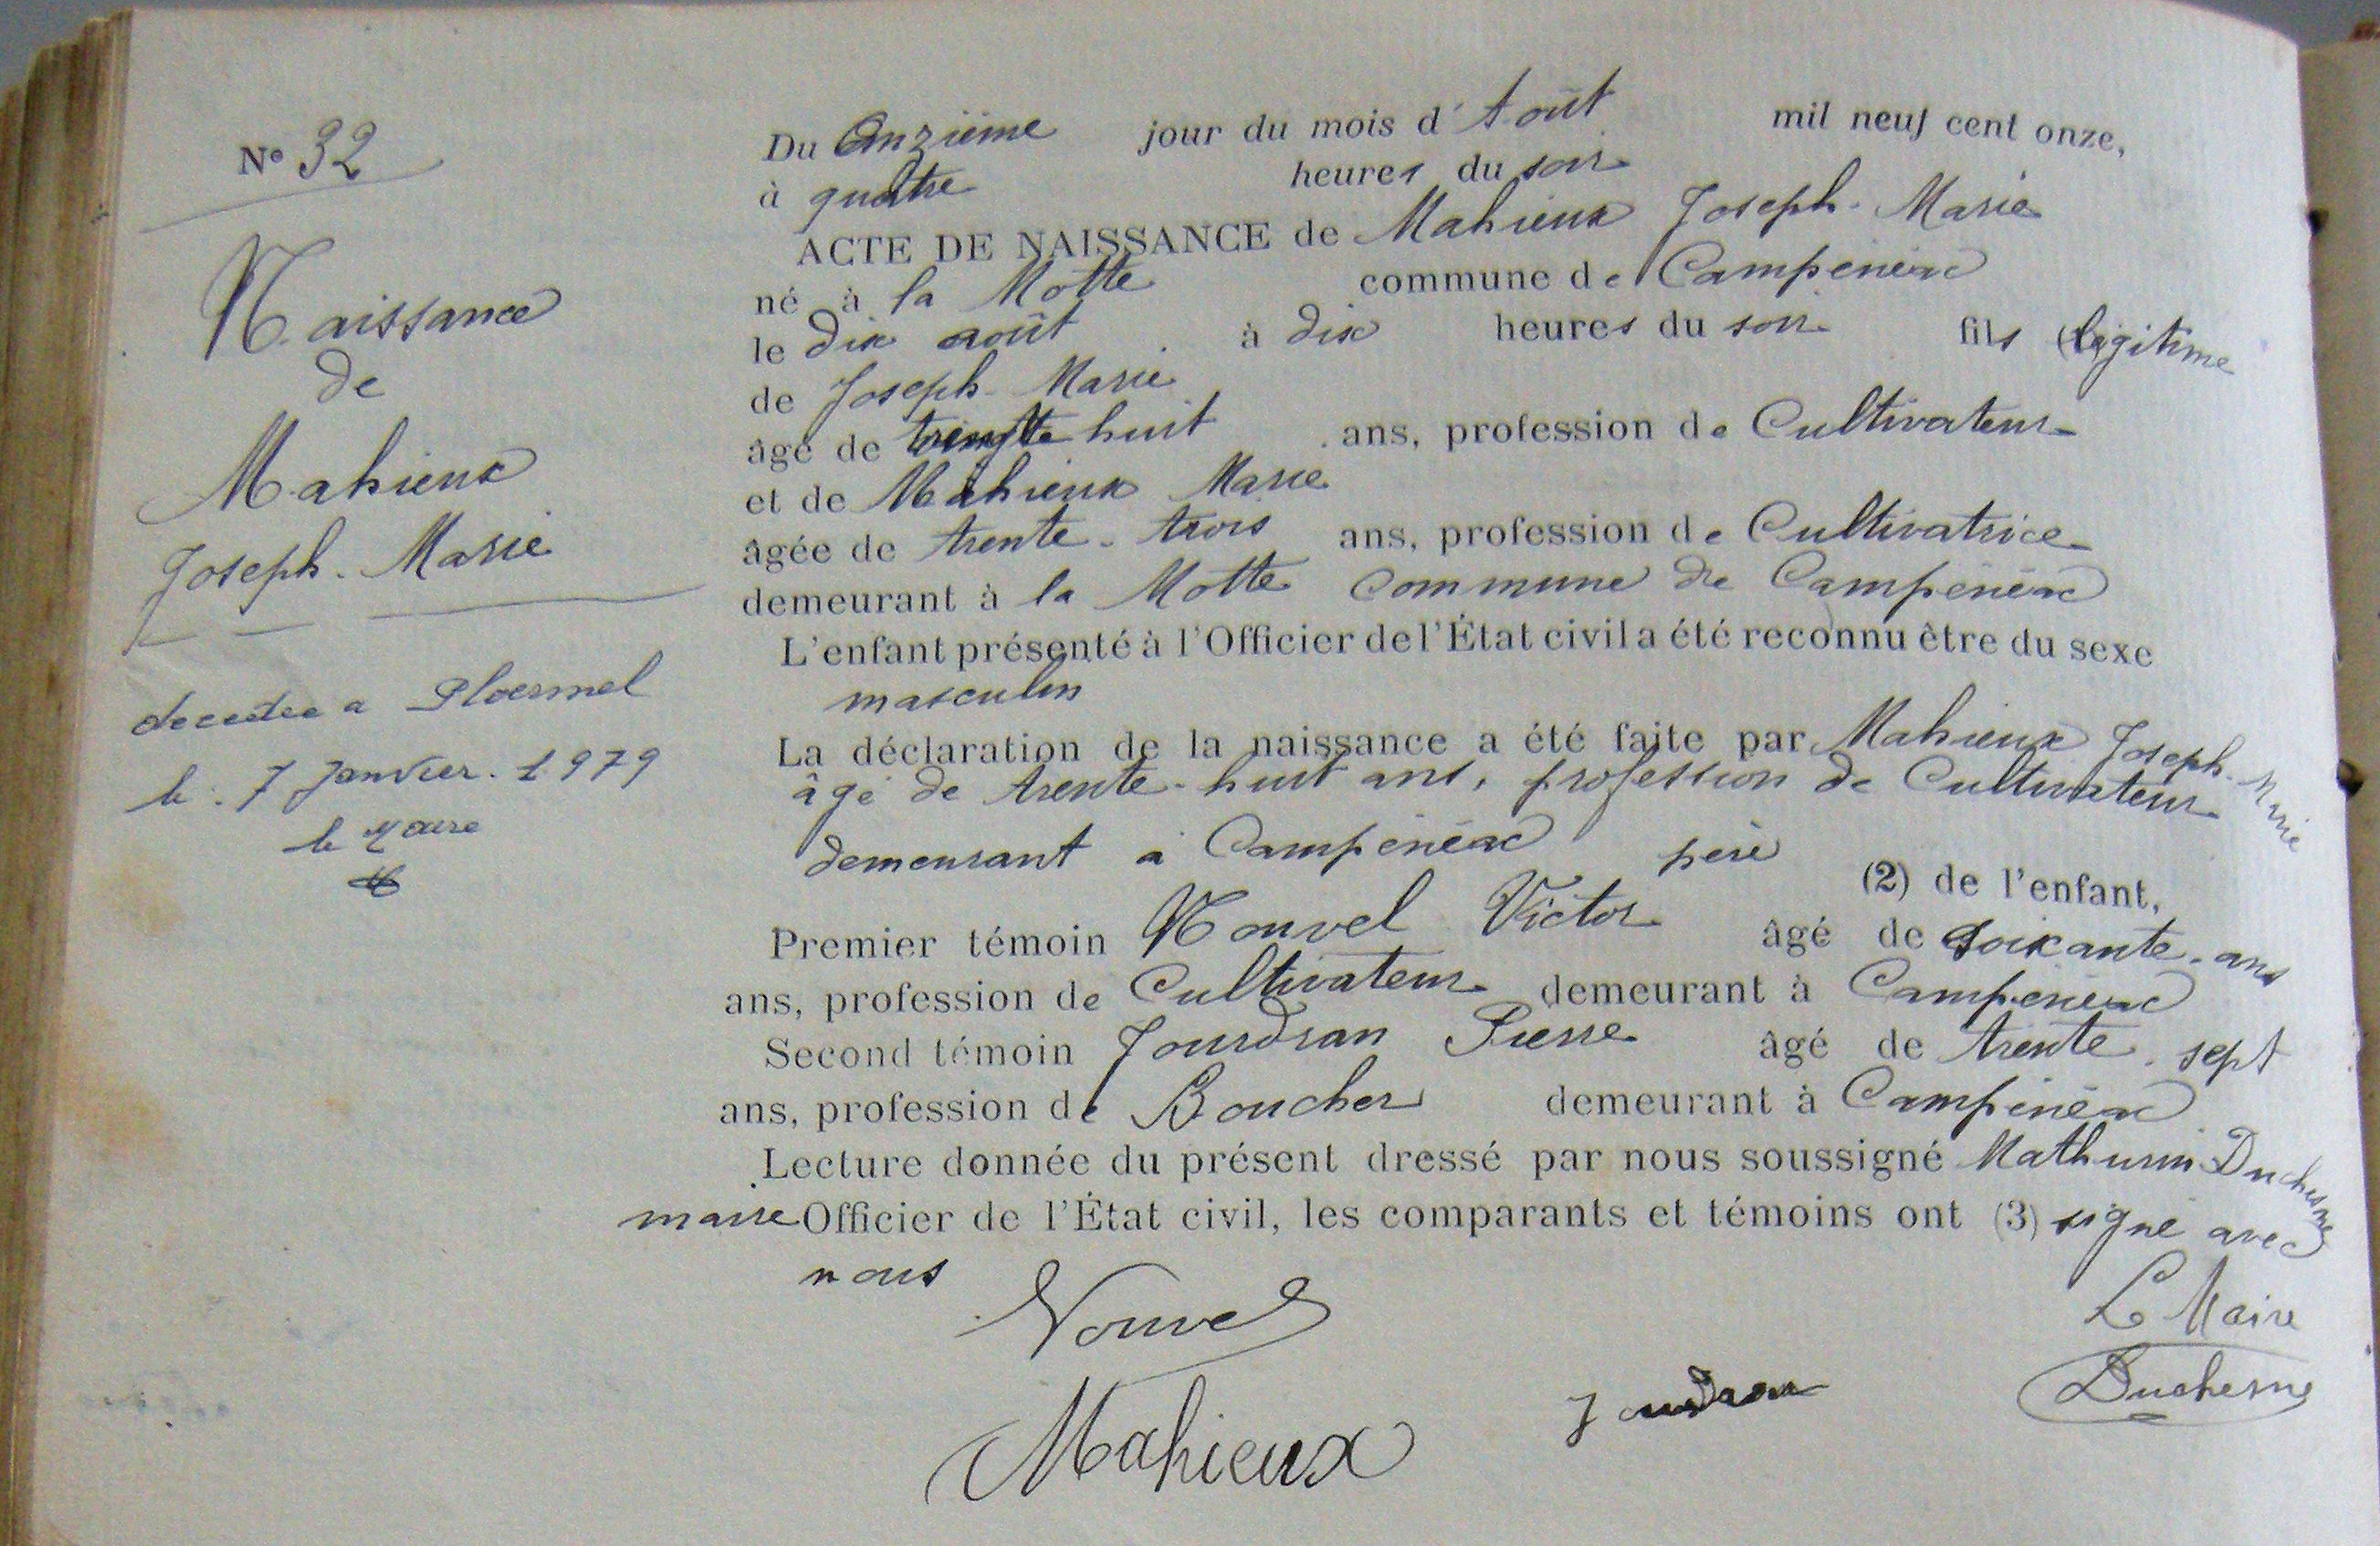 N° 32
Naissance
de
Mahieux
Joseph-Marie
decedee a Ploermel
le 7 Janvier 1979
le Maire
Du Onzième jour du mois d'Août mil neuf cent onze,
à quatre heures du soir
ACTE DE NAISSANCE de Mahieux Joseph-Marie
né à la Motte commune de Campénéac
le dix août à dix heures du soir fils légitime
de Joseph-Marie
âgé de trente huit ans, profession de Cultivateur
et de Mahieux Marie
âgée de trente-trois ans, profession de Cultivatrice
demeurant à la Motte commune de Campénéac
L'enfant présenté à l'Officier de l'État civil a été reconnu être du sexe
masculin
La déclaration de la naissance a été faite par Mahieux Joseph-Marie
âgé de trente-huit ans, profession de Cultivateur
demeurant à Campénéac père (2) de l'enfant,
Premier témoin Nouvel Victor âgé de soixante-ans
ans, profession de Cultivateur demeurant à Campénéac
Second témoin Jourdran Pierre âgé de trente-sept
ans, profession de Boucher demeurant à Campénéac
Lecture donnée du présent dressé par nous soussigné Mathurin Duchesne
maire Officier de l'État civil, les comparants et témoins ont (3) signé avec
nous
Nouvel
Le Maire
Duchesne
Jourdran
Mahieux